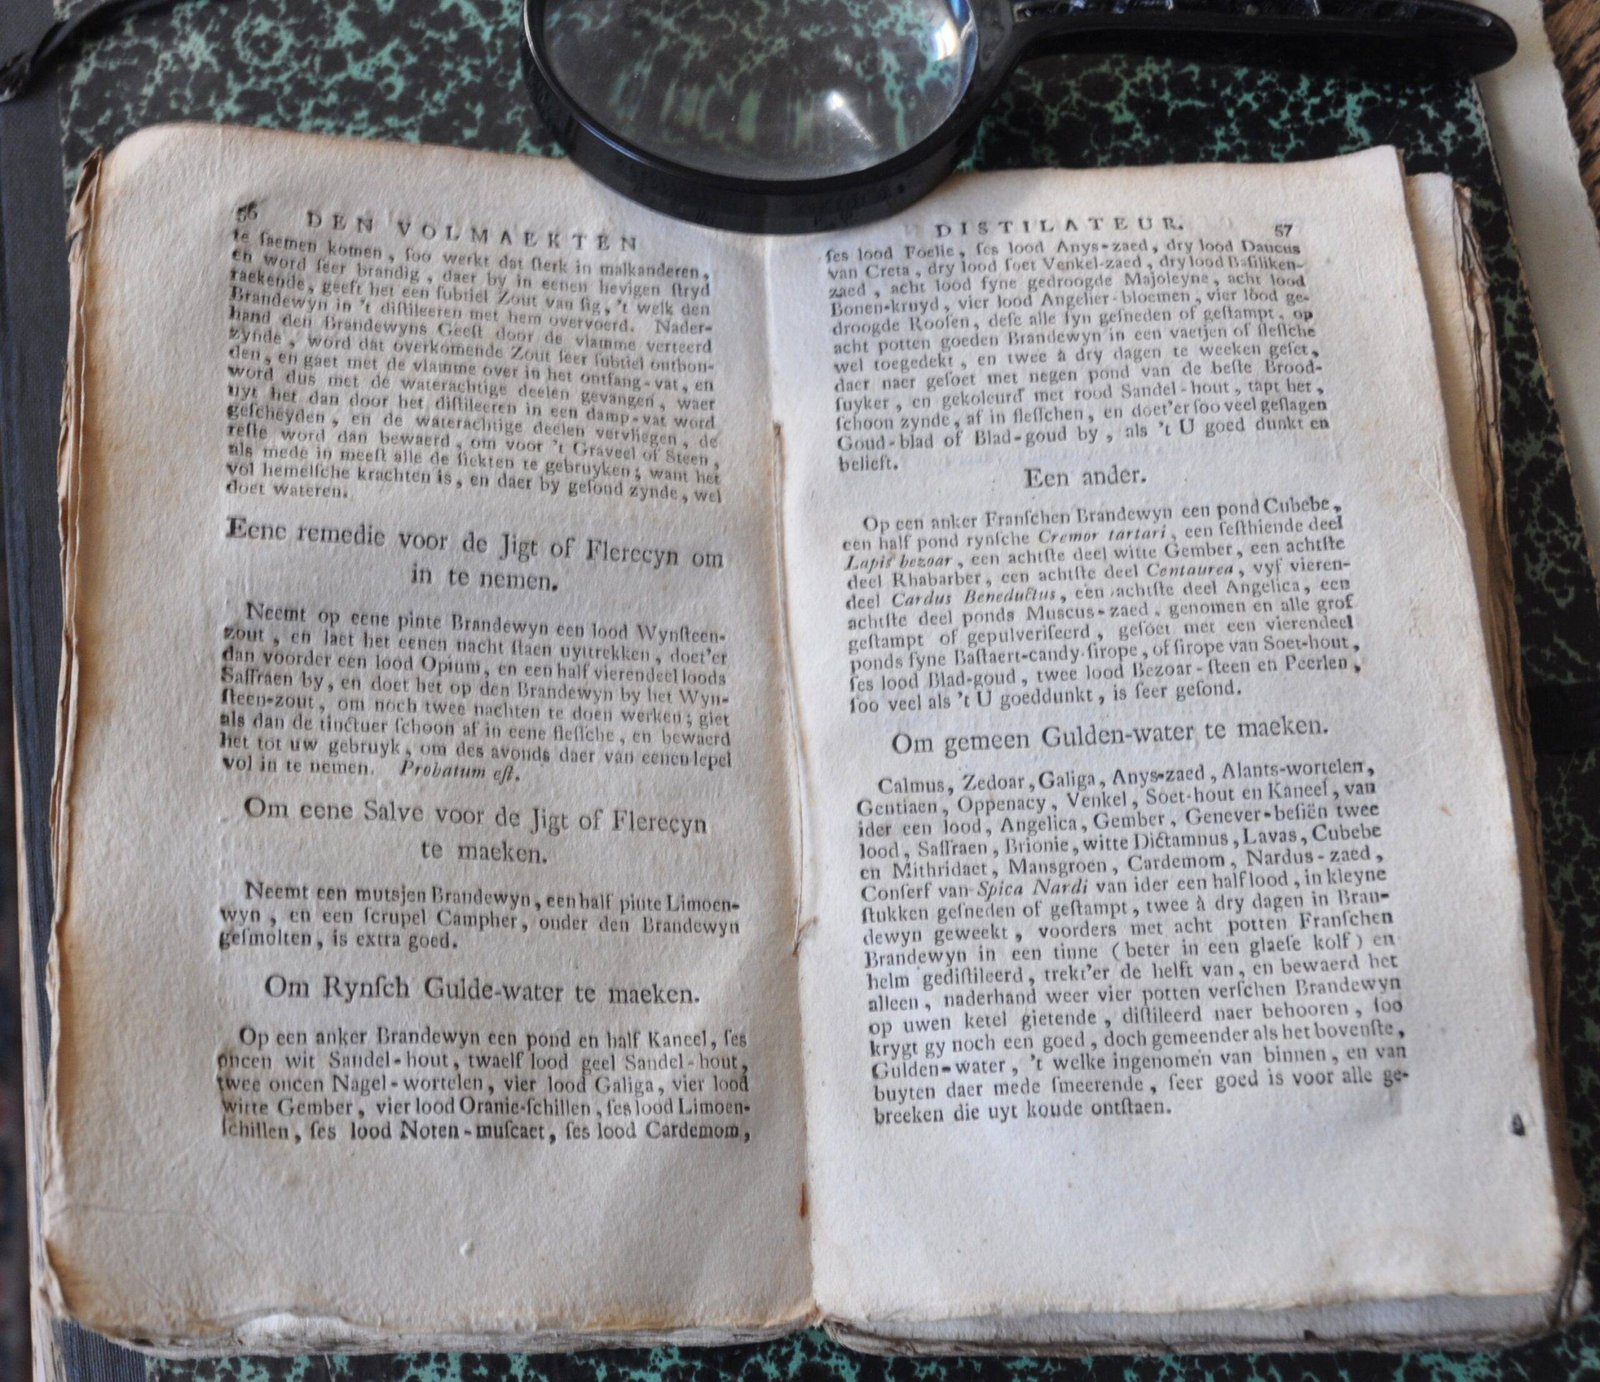 56 DEN VOLMAEKTEN
te ſaemen komen, ſoo werkt dat ſterk in malkanderen,
en word ſeer brandig, daer by in eenen hevigen ſtryd
raekende, geeft het een ſubtiel Zout van ſig, 't welk den
Brandewyn in 't diſtileeren met hem overvoerd. Nader-
hand den Brandewyns Geeſt door de vlamme verteerd
zynde, word dat overkomende Zout ſeer ſubtiel ontbon-
den, en gaet met de vlamme over in het ontfang-vat, en
word dus met de waterachtige deelen gevangen, waer
uyt het dan door het diſtileeren in een damp-vat word
geſcheyden, en de waterachtige deelen vervliegen, de
reſte word dan bewaerd, om voor 't Graveel of Steen,
als mede in meeſt alle de ſiekten te gebruyken; want het
vol hemelſche krachten is, en daer by geſond zynde, wel
doet wateren.
Eene remedie voor de Jigt of Flerecyn om
in te nemen.
Neemt op eene pinte Brandewyn een lood Wynſteen-
zout, en laet het eenen nacht ſtaen uyttrekken, doet'er
dan voorder een lood Opium, en een half vierendeel loods
Saffraen by, en doet het op den Brandewyn by het Wyn-
ſteen-zout, om noch twee nachten te doen werken; giet
als dan de tinctuer ſchoon af in eene fleſſche, en bewaerd
het tot uw gebruyk, om des avonds daer van eenen lepel
vol in te nemen. Probatum eſt.
Om eene Salve voor de Jigt of Flerecyn
te maeken.
Neemt een mutsjen Brandewyn, een half pinte Limoen-
wyn, en een ſcrupel Campher, onder den Brandewyn
geſmolten, is extra goed.
Om Rynſch Gulde-water te maeken.
Op een anker Brandewyn een pond en half Kaneel, ſes
oncen wit Sandel-hout, twaelf lood geel Sandel-hout,
twee oncen Nagel-wortelen, vier lood Galiga, vier lood
witte Gember, vier lood Oranie-ſchillen, ſes lood Limoen-
ſchillen, ſes lood Noten-muſcaet, ſes lood Cardemom,
DISTILATEUR. 57
ſes lood Foelie, ſes lood Anys-zaed, dry lood Daucus
van Creta, dry lood ſoet Venkel-zaed, dry lood Baſiliken-
zaed, acht lood fyne gedroogde Majoleyne, acht lood
Bonen-kruyd, vier lood Angelier-bloemen, vier lood ge-
droogde Rooſen, deſe alle fyn geſneden of geſtampt, op
acht potten goeden Brandewyn in een vaetjen of fleſſche
wel toegedekt, en twee à dry dagen te weeken geſet,
daer naer geſoet met negen pond van de beſte Brood-
ſuyker, en gekoleurd met rood Sandel-hout, tapt het,
ſchoon zynde, af in fleſſchen, en doet'er ſoo veel geſlagen
Goud-blad of Blad-goud by, als 't U goed dunkt en
belieft.
Een ander.
Op een anker Franſchen Brandewyn een pond Cubebe,
een half pond rynſche Cremor tartari, een ſeſthiende deel
Lapis bezoar, een achtſte deel witte Gember, een achtſte
deel Rhabarber, een achtſte deel Centaurea, vyf vieren-
deel Cardus Beneductus, een achtſte deel Angelica, een
achtſte deel ponds Muscus-zaed, genomen en alle grof
geſtampt of gepulveriſeerd, geſoet met een vierendeel
ponds fyne Baſtaert-candy-ſirope, of ſirope van Soet-hout,
ſes lood Blad-goud, twee lood Bezoar-ſteen en Peerlen,
ſoo veel als 't U goeddunkt, is ſeer geſond.
Om gemeen Gulden-water te maeken.
Calmus, Zedoar, Galiga, Anys-zaed, Alants-wortelen,
Gentiaen, Oppenacy, Venkel, Soet-hout en Kaneel, van
ider een lood, Angelica, Gember, Genever-beſiën twee
lood, Saffraen, Brionie, witte Dictamnus, Lavas, Cubebe
en Mithridaet, Mansgroen, Cardemom, Nardus-zaed,
Conſerf van Spica Nardi van ider een half lood, in kleyne
ſtukken geſneden of geſtampt, twee à dry dagen in Bran-
dewyn geweekt, voorders met acht potten Franſchen
Brandewyn in een tinne (beter in een glaeſe kolf) en
helm gediſtileerd, trekt'er de helft van, en bewaerd het
alleen, naderhand weer vier potten verſchen Brandewyn
op uwen ketel gietende, diſtileerd naer behooren, ſoo
krygt gy noch een goed, doch gemeender als het bovenſte,
Gulden-water, 't welke ingenomen van binnen, en van
buyten daer mede ſmeerende, ſeer goed is voor alle ge-
breeken die uyt koude ontſtaen.